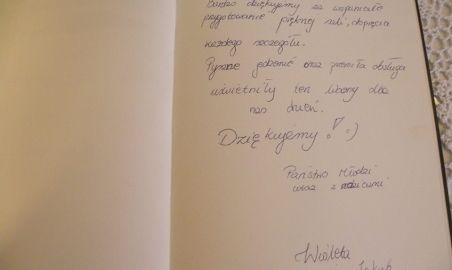 Bardzo dziękujemy za wspaniałe
przygotowanie pięknej sali, dopięcia
każdego szczegółu.
Pyszne jedzenie oraz przemiła obsługa
uświetniły ten ważny dla
nas dzień.
Dziękujemy! :)
Państwo Młodzi
wraz z rodzicami
Wioleta
Jakub